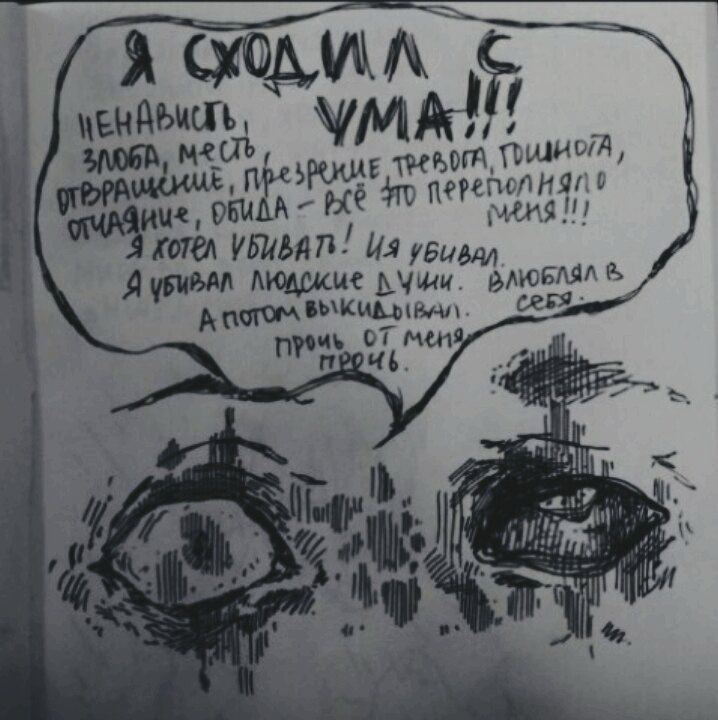 Я СХОДИЛ С
УМА!!!
НЕНАВИСТЬ,
ЗЛОБА, МЕСТЬ,
ОТВРАЩЕНИЕ, ПРЕЗРЕНИЕ, ТРЕВОГА, ТОШНОТА,
ОТЧАЯНИЕ, ОБИДА – ВСЁ ЭТО ПЕРЕПОЛНЯЛО
МЕНЯ!!!
Я ХОТЕЛ УБИВАТЬ! И Я УБИВАЛ.
Я УБИВАЛ ЛЮДСКИЕ ДУШИ. ВЛЮБЛЯЛ В
СЕБЯ.
А ПОТОМ ВЫКИДЫВАЛ.
ПРОЧЬ ОТ МЕНЯ.
ПРОЧЬ.